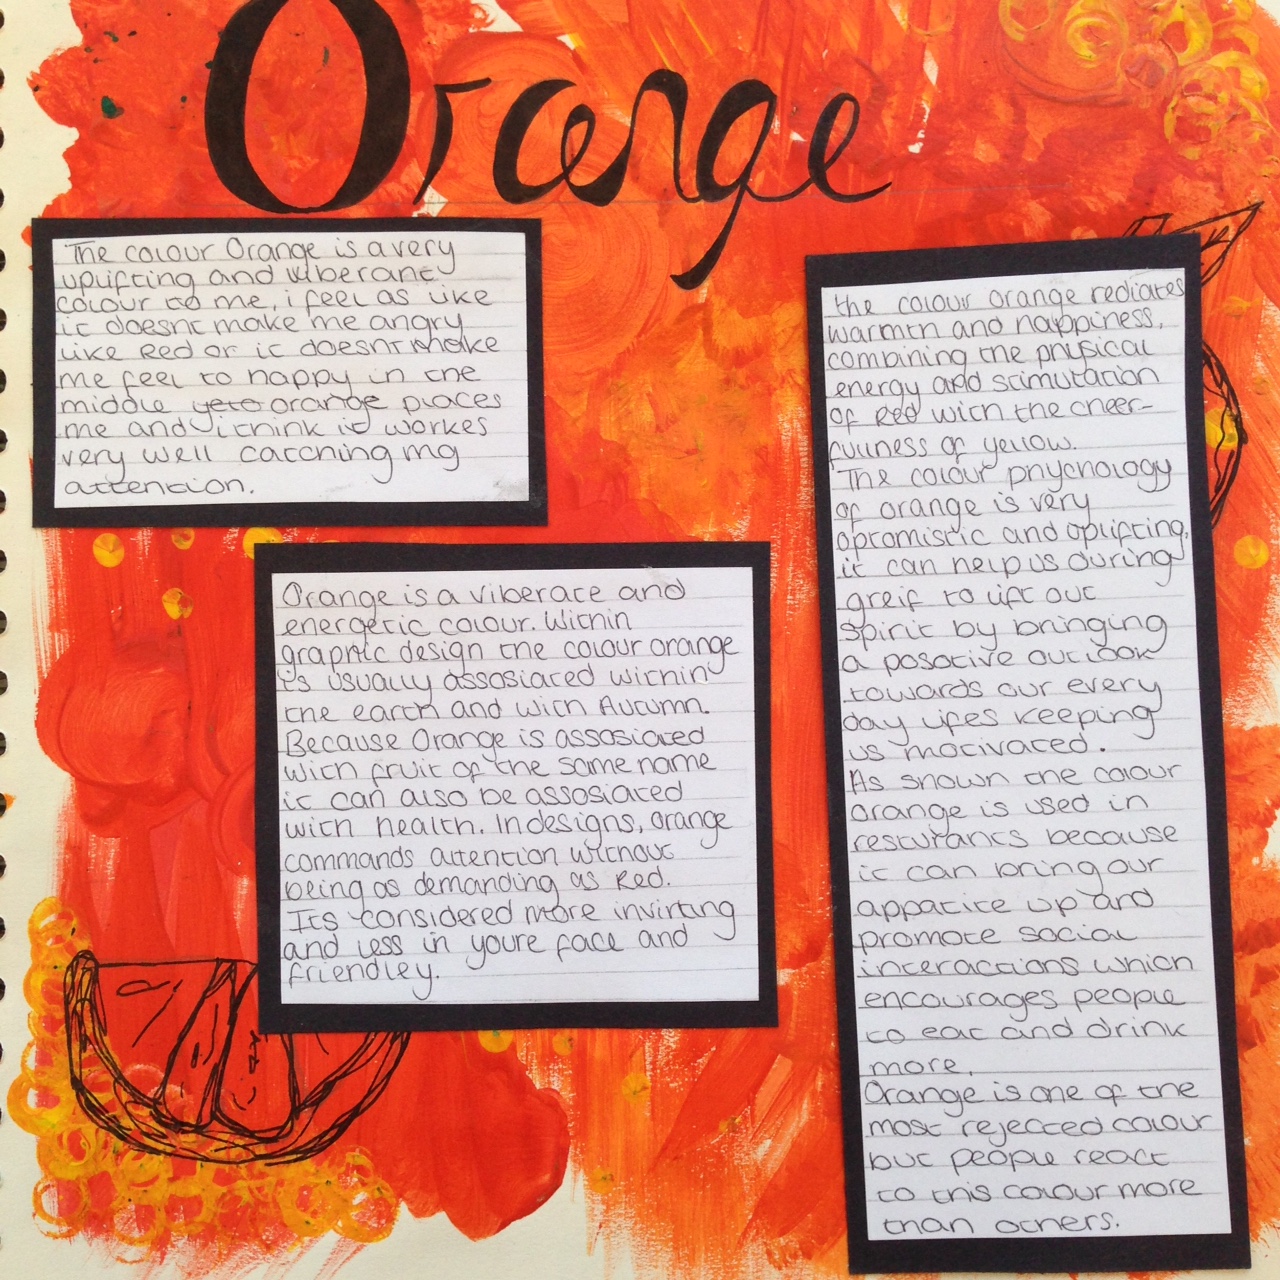 Orange
The colour Orange is a very
uplifting and viberant
colour to me, i feel as like
it doesnt make me angry
like Red or it doesnt make
me feel to happy in the
middle yeto orange places
me and i think it workes
very well catching my
attention.
Orange is a viberate and
energetic colour. Within
graphic design the colour orange
is usually assosiated within
the earth and with Autumn.
Because Orange is assosiated
with fruit of the same name
it can also be assosiated
with health. In designs, orange
commands attention without
being as demanding as Red.
Its considered more invirting
and less in youre face and
friendley.
the colour orange rediates
warmth and happiness,
combining the phisical
energy and stimulation
of Red with the cheer-
fullness of yellow.
The colour phycology
of orange is very
optomistic and uplifting,
it can help us during
greif to lift out
spirit by bringing
a posative outlook
towards our every
day lifes keeping
us motivated.
As shown the colour
orange is used in
resturants because
it can bring our
appatite up and
promote social
interactions which
encourages people
to eat and drink
more.
Orange is one of the
most rejected colour
but people react
to this colour more
than others.